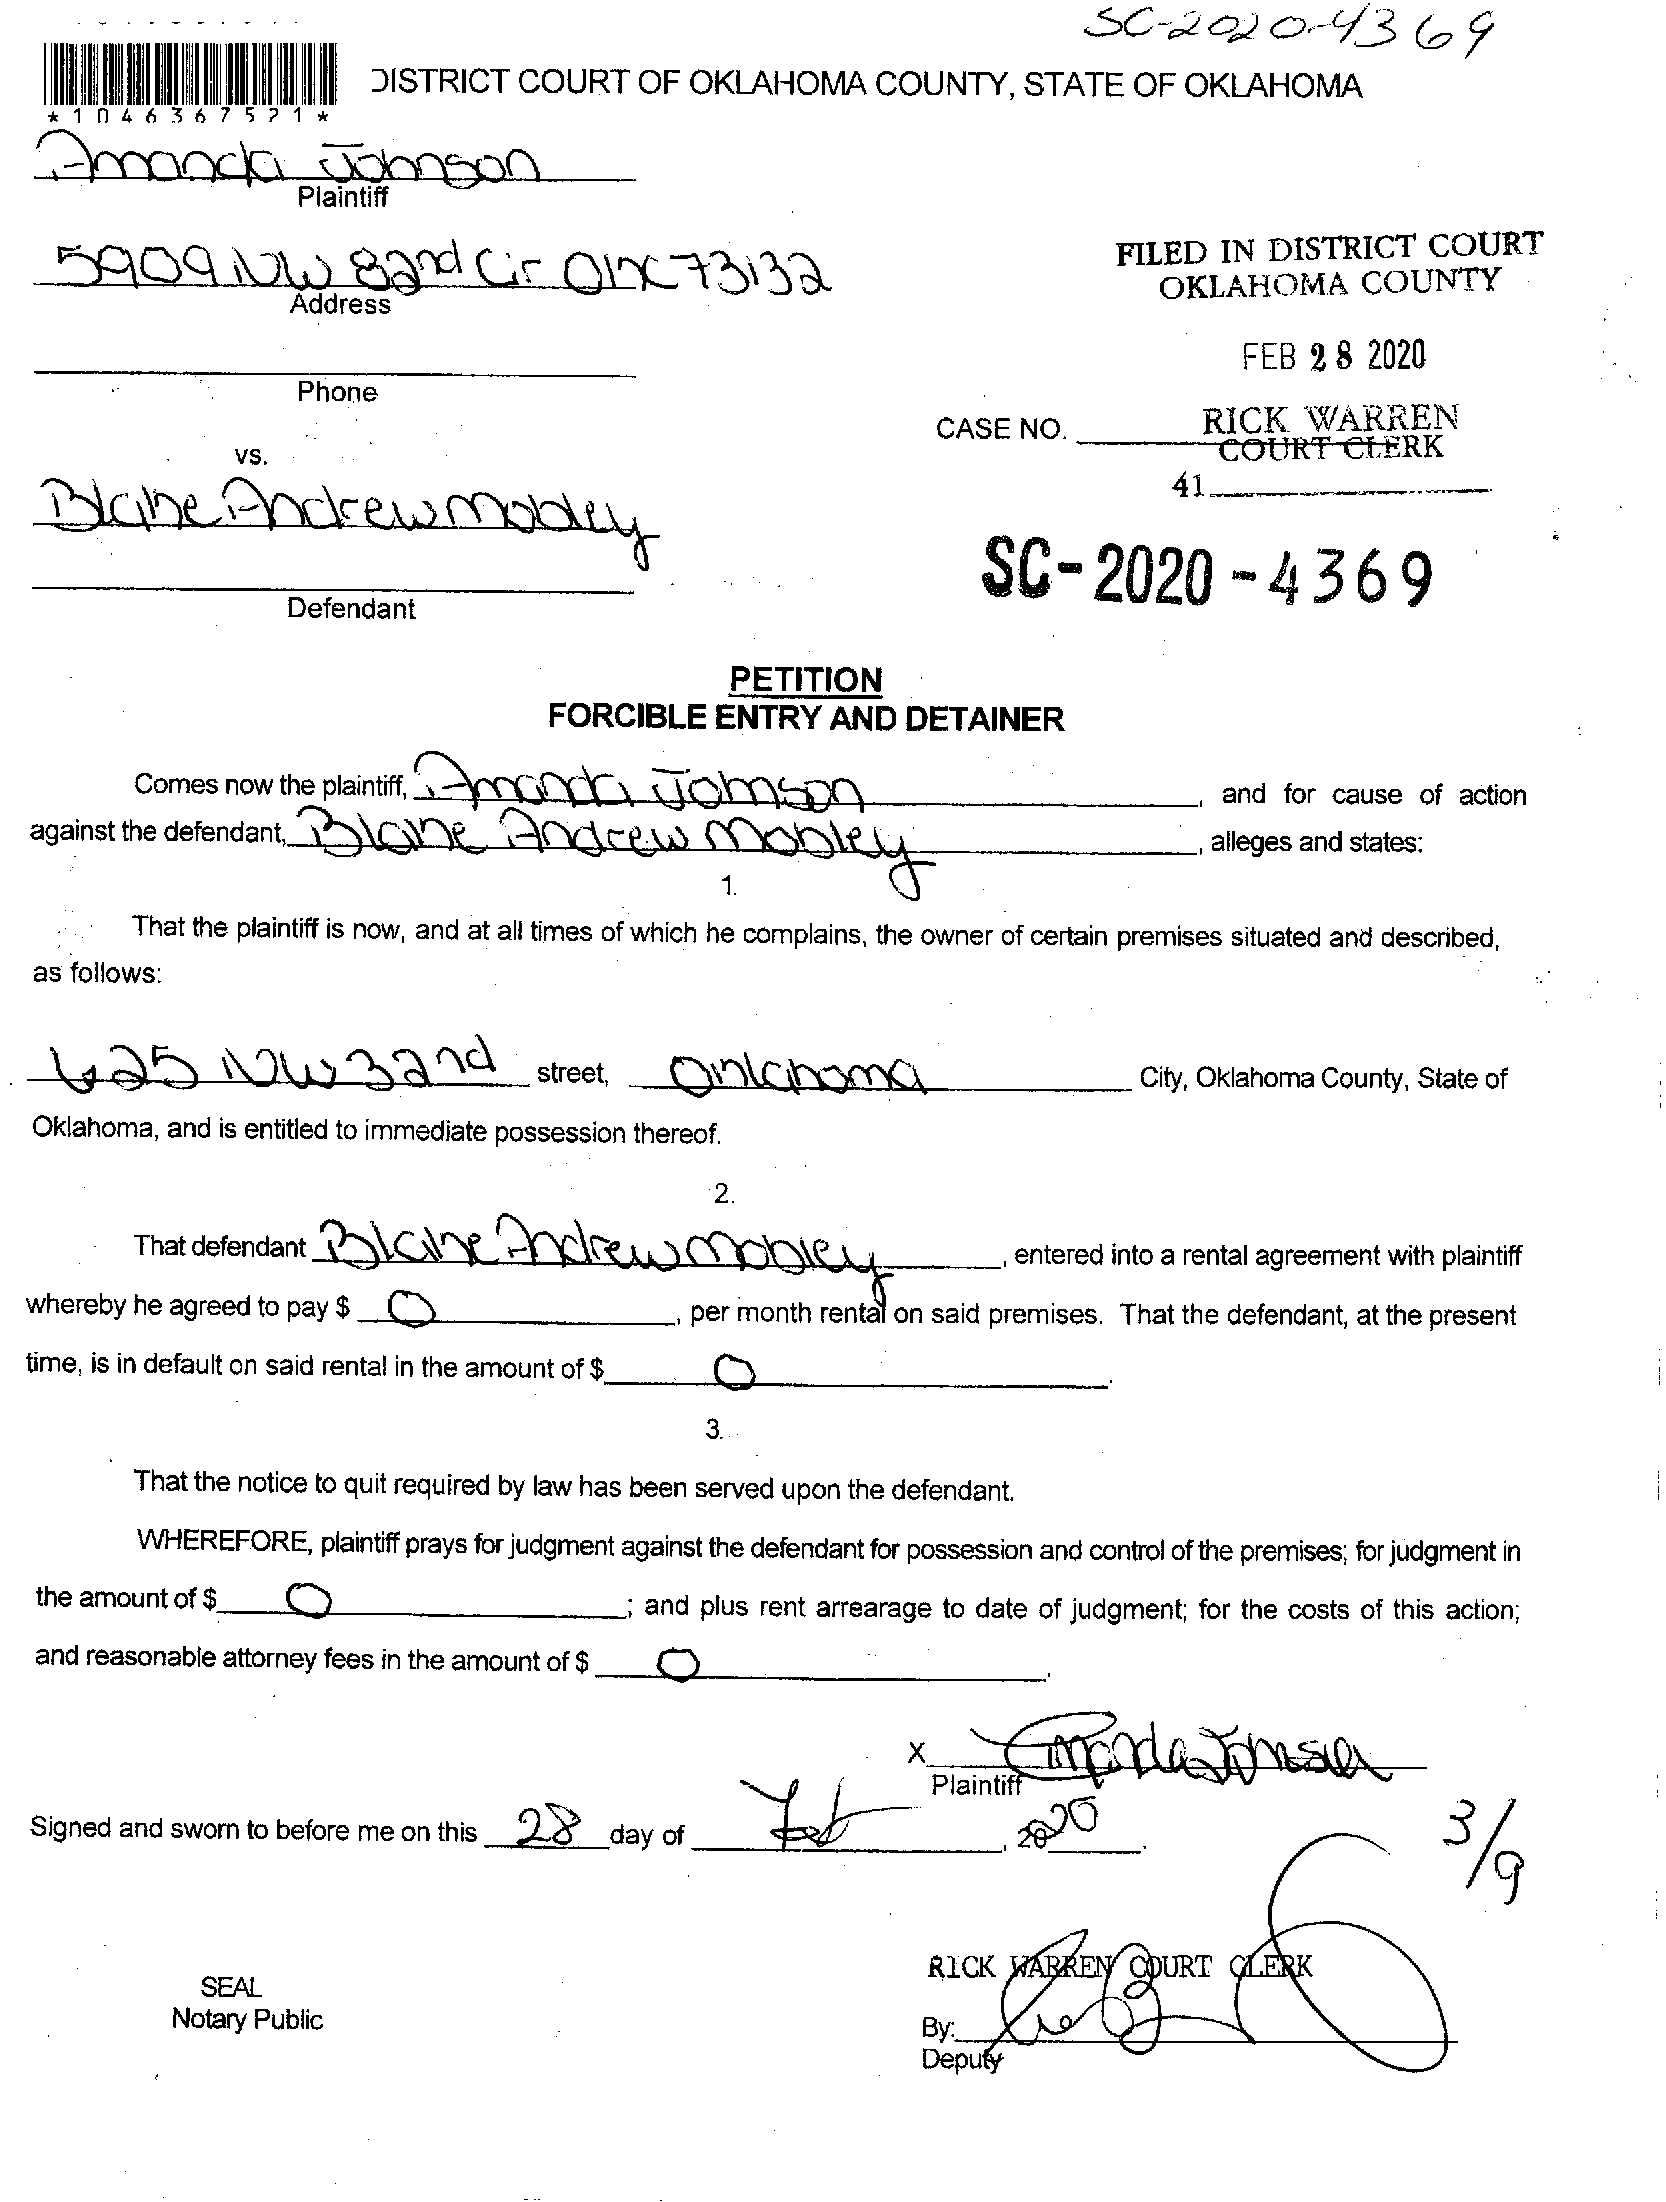 SC-2020-4369
DISTRICT COURT OF OKLAHOMA COUNTY, STATE OF OKLAHOMA
*1046367521*
Amanda Johnson
Plaintiff
5909 NW 82nd Cir OKC 73132
Address
FILED IN DISTRICT COURT
OKLAHOMA COUNTY
FEB 28 2020
Phone
CASE NO.
RICK WARREN
COURT CLERK
vs.
41
Blaine Andrew Mobley
SC-2020-4369
Defendant
PETITION
FORCIBLE ENTRY AND DETAINER
Comes now the plaintiff, Amanda Johnson, and for cause of action
against the defendant, Blaine Andrew Mobley, alleges and states:
1.
That the plaintiff is now, and at all times of which he complains, the owner of certain premises situated and described,
as follows:
625 NW 32nd street, Oklahoma City, Oklahoma County, State of
Oklahoma, and is entitled to immediate possession thereof.
2.
That defendant Blaine Andrew Mobley, entered into a rental agreement with plaintiff
whereby he agreed to pay $ 0, per month rental on said premises. That the defendant, at the present
time, is in default on said rental in the amount of $ 0.
3.
That the notice to quit required by law has been served upon the defendant.
WHEREFORE, plaintiff prays for judgment against the defendant for possession and control of the premises; for judgment in
the amount of $ 0; and plus rent arrearage to date of judgment; for the costs of this action;
and reasonable attorney fees in the amount of $ 0.
X Amanda Johnson
Plaintiff
Signed and sworn to before me on this 28 day of Feb, 2020.
3/9
RICK WARREN COURT CLERK
SEAL
Notary Public
By:
Deputy